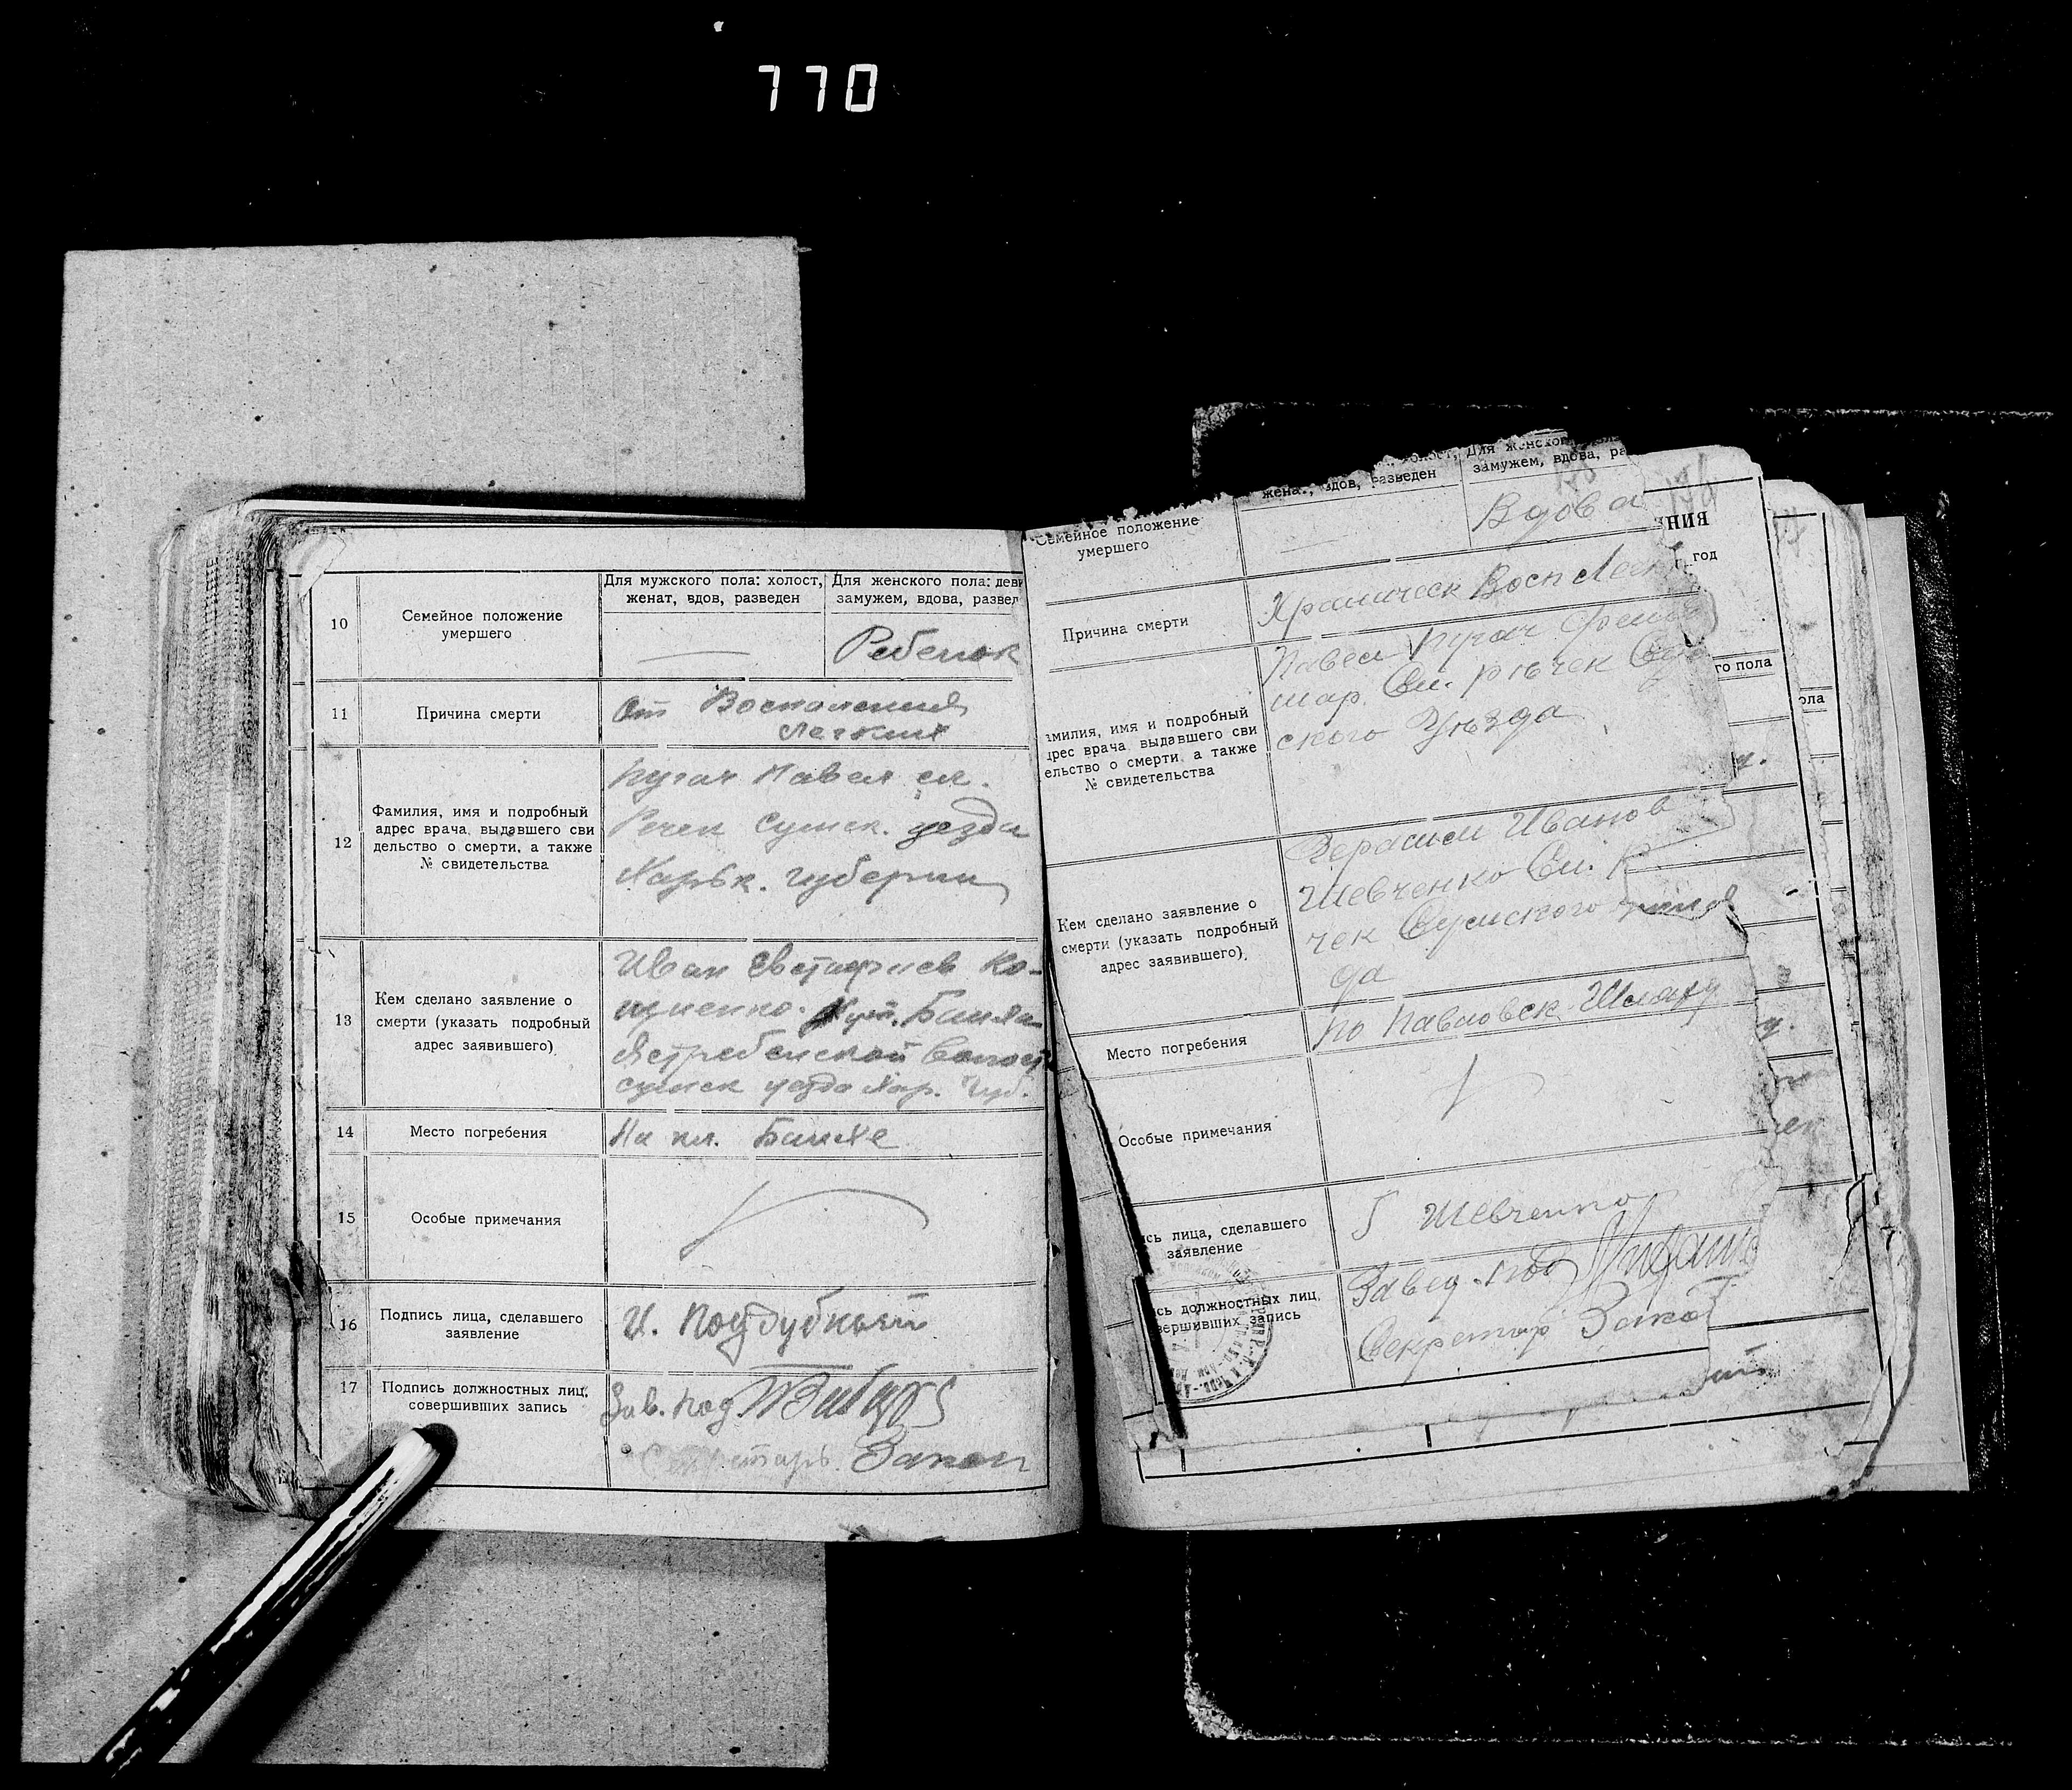 770
10
Семейное положение
умершего
Для мужского пола: холост,
женат, вдов, разведен
Для женского пола: деви
замужем, вдова, развед
Ребенок
11
Причина смерти
От Воспаления
Легких
12
Фамилия, имя и подробный
адрес врача, выдавшего сви
дельство о смерти, а также
№ свидетельства
Пугач Павел сл.
Речек Сумск. уезда
Харьк. губернии
13
Кем сделано заявление о
смерти (указать подробный
адрес заявившего).
Иван
Хут. Банха
Ястребенской Волост
сумск уезда Хар. Губ.
14
Место погребения
На кл. Банхе
15
Особые примечания
16
Подпись лица, сделавшего
заявление
И. Поддубный
17
Подпись должностных лиц,
совершивших запись
Зав. под
Секретарь
холост,
женат, вдов, разведен
Для женского
замужем, вдова, ра
Семейное положение
умершего
Вдова
НИЯ
год
Причина смерти
Хроническ Восп Легк
го пола
ола
амилия, имя и подробный
дрес врача, выдавшего сви
ельство о смерти, а также
№ свидетельства
Павел Пугач Фельд
шар. Сл. Рѣчек Сум
ского Уѣзда
Кем сделано заявление о
смерти (указать подробный
адрес заявившего).
Герасим Иванов
Шевченко Сл. Р
чек Сумского
да
Место погребения
По Павловск. Шляху
Особые примечания
сь лица, сделавшего
заявление
Г Шевченко
сь должностных лиц,
вершивших запись
Завед. под
Секретар